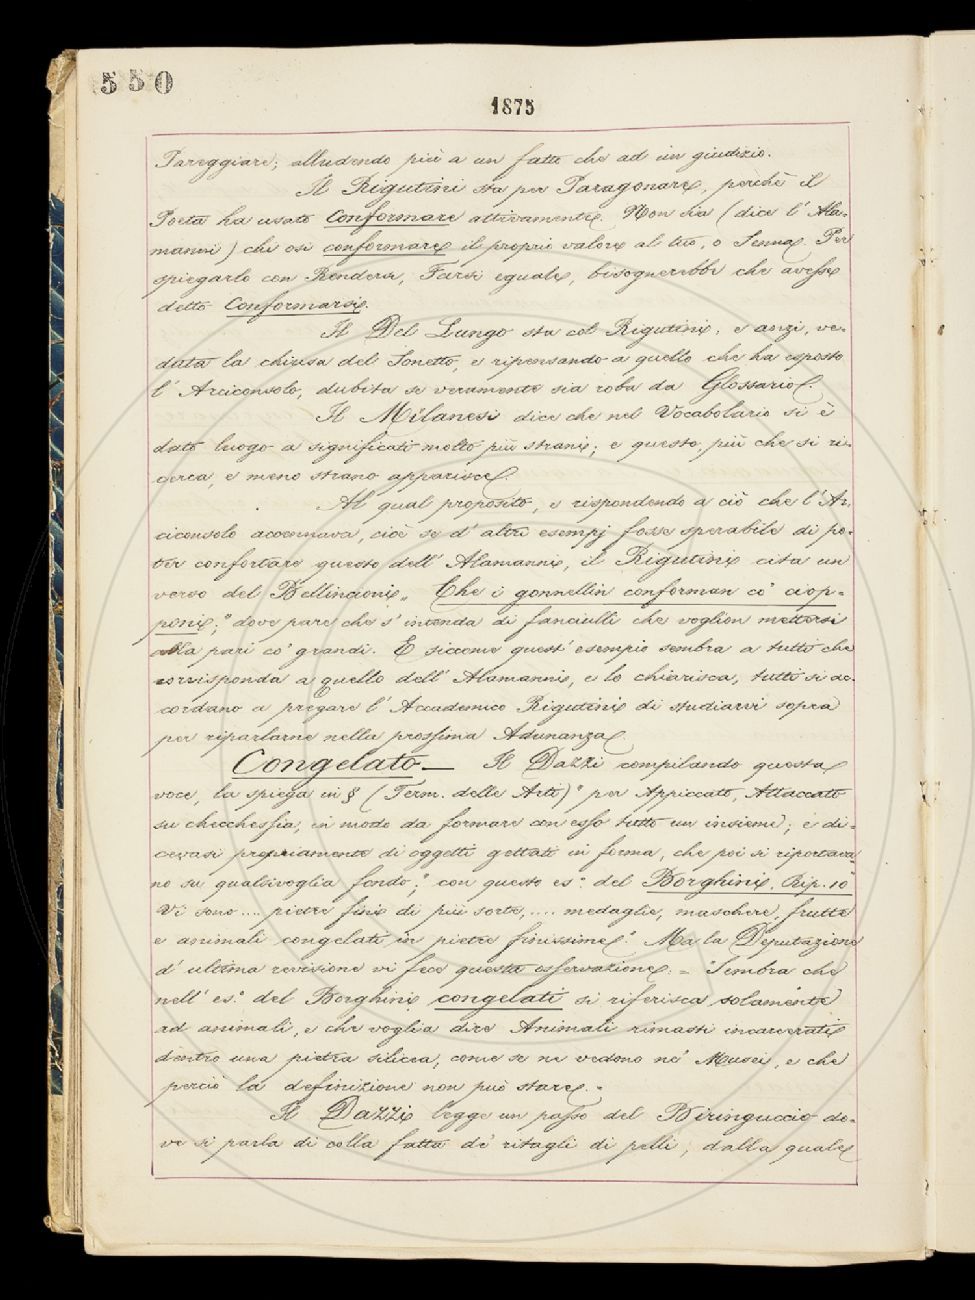 550
1875
Pareggiare; alludendo più a un fatto che ad un giudizio.
Il Rigutini sta per Paragonare, perchè il
Poeta ha usato Conformare attivamente. Non sia (dice l'Ala-
manni) chi osi conformare il proprio valore al tuo, o Senna. Per
spiegarlo con Rendersi, Farsi eguale, bisognerebbe che avesse
detto Conformarsi.
Il Del Lungo sta col Rigutini; e anzi, ve-
duta la chiusa del Sonetto, e ripensando a quello che ha esposto
l'Arciconsolo, dubita se veramente sia roba da Glossario.
Il Milanesi dice che nel Vocabolario si è
dato luogo a significati molto più strani; e questo, più che si ri-
cerca, e meno strano apparisce.
Al qual proposito, e rispondendo a ciò che l'Ar-
ciconsolo accennava, cioè se d'altri esempj fosse sperabile di po-
ter confortare questo dell'Alamanni, il Rigutini cita un
verso del Bellincioni „ Che i gonnellin conforman co' ciop-
poni;" dove pare che s'intenda di fanciulli che voglion mettersi
alla pari co' grandi. E siccome quest'esempio sembra a tutti che
corrisponda a quello dell'Alamanni, e lo chiarisca, tutti si ac-
cordano a pregare l'Accademico Rigutini di studiarvi sopra
per riparlarne nella prossima Adunanza.
Congelato — Il Dazzi compilando questa
voce, la spiega in § (Term. delle Arti) "per Appiccato, Attaccato
su checchessia, in modo da formare con esso tutto un insieme; e di-
cevasi propriamente di oggetti gettati in forma, che poi si riportava-
no su qualsivoglia fondo;" con questo es: del Borghini, Rip. 10 "
Vi sono .... pietre fini di più sorte, .... medaglie, maschere, frutte
e animali congelati in pietre finissime." Ma la Deputazione
d'ultima revisione vi fece questa osservazione: = "Sembra che
nell'es: del Borghini congelati si riferisca solamente
ad animali, e che voglia dire Animali rimasti incarcerati
dentro una pietra silicea, come se ne vedono ne' Musei, e che
perciò la definizione non può stare. "
Il Dazzi legge un passo del Biringuccio do-
ve si parla di colla fatta di ritagli di pelli, dalla quale